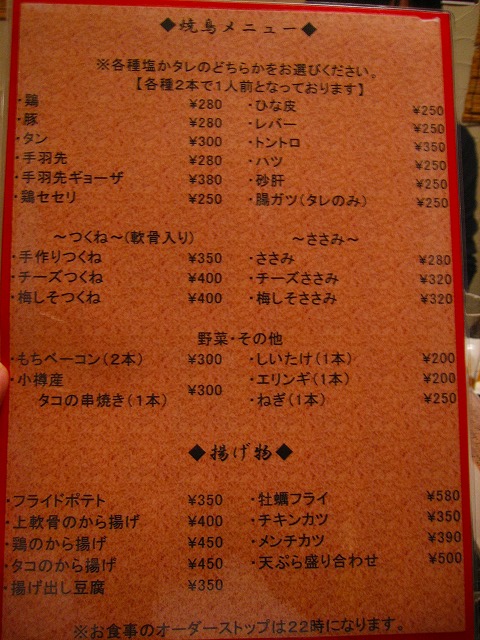 ◆焼鳥メニュー◆
※各種塩かタレのどちらかをお選びください。
【各種２本で１人前となっております】
・鶏 ¥280 ・ひな皮 ¥250
・豚 ¥280 ・レバー ¥250
・タン ¥300 ・トントロ ¥350
・手羽先 ¥280 ・ハツ ¥250
・手羽先ギョーザ ¥380 ・砂肝 ¥250
・鶏セセリ ¥250 ・腸ガツ(タレのみ) ¥250
～つくね～(軟骨入り) ～ささみ～
・手作りつくね ¥350 ・ささみ ¥280
・チーズつくね ¥400 ・チーズささみ ¥320
・梅しそつくね ¥400 ・梅しそささみ ¥320
野菜・その他
・もちベーコン(２本) ¥300 ・しいたけ(１本) ¥200
・小樽産 ・エリンギ(１本) ¥200
タコの串焼き(１本) ¥300 ・ねぎ(１本) ¥250
◆揚げ物◆
・フライドポテト ¥350 ・牡蠣フライ ¥580
・上軟骨のから揚げ ¥400 ・チキンカツ ¥350
・鶏のから揚げ ¥450 ・メンチカツ ¥390
・タコのから揚げ ¥450 ・天ぷら盛り合わせ ¥500
・揚げ出し豆腐 ¥350
※お食事のオーダーストップは２２時になります。